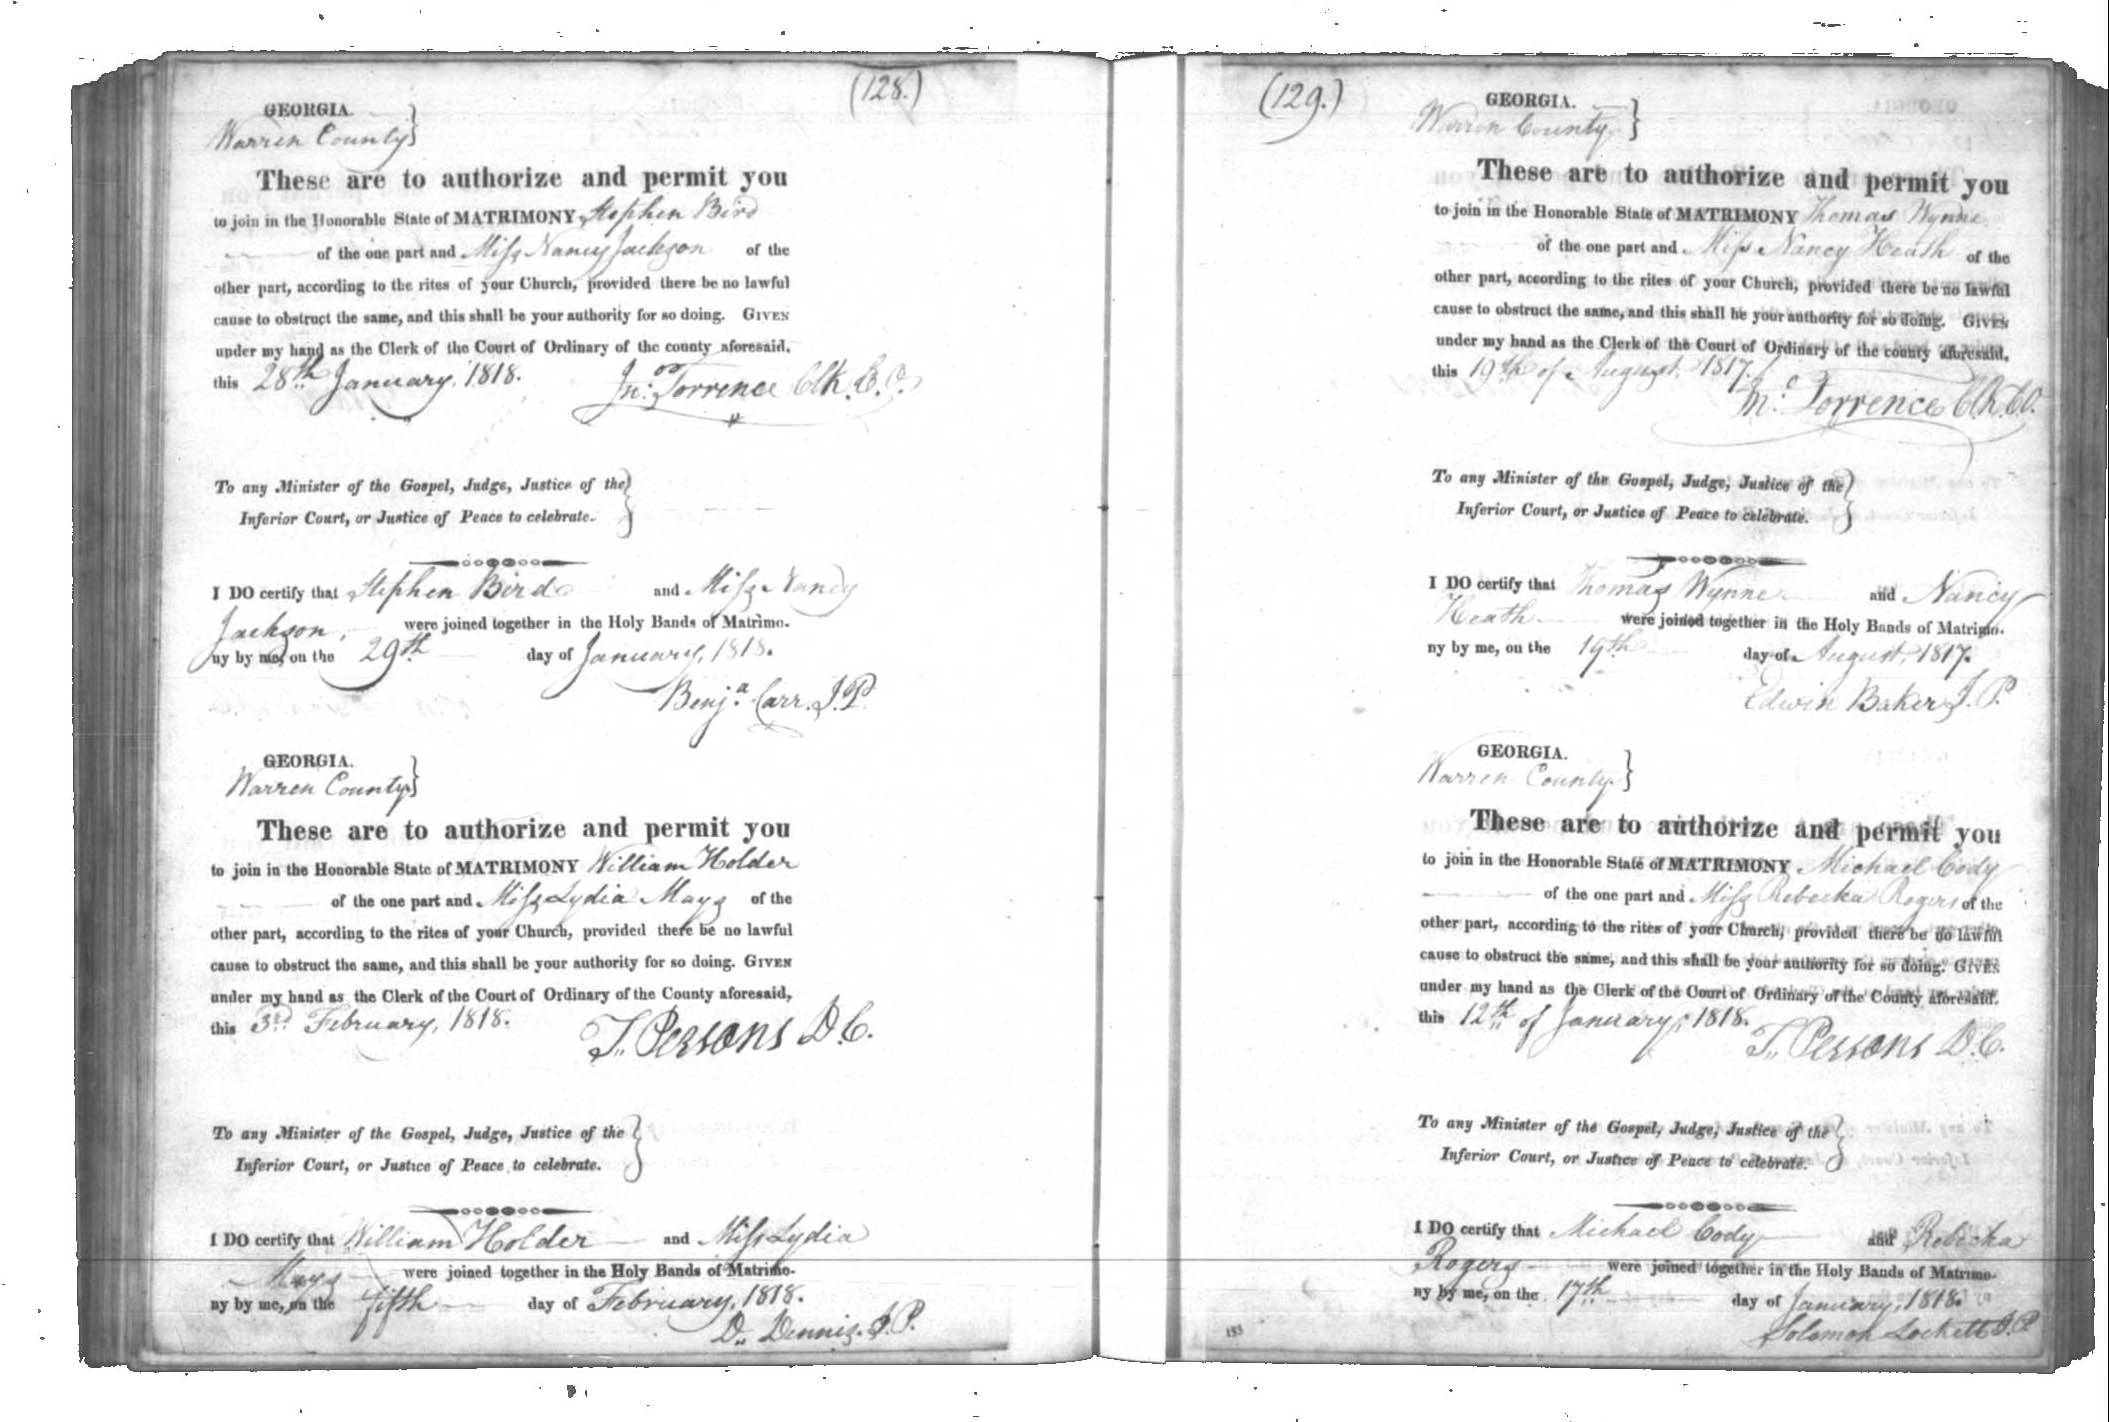 (128.)
GEORGIA.
Warren County}
These are to authorize and permit you
to join in the Honorable State of MATRIMONY Stephen Bird
of the one part and Miss Nancy Jackson of the
other part, according to the rites of your Church, provided there be no lawful
cause to obstruct the same, and this shall be your authority for so doing. GIVEN
under my hand as the Clerk of the Court of Ordinary of the county aforesaid,
this 28th January, 1818. Jno. Torrence Clk. C. O.
To any Minister of the Gospel, Judge, Justice of the
Inferior Court, or Justice of Peace to celebrate.
I DO certify that Stephen Bird and Miss Nancy
Jackson, were joined together in the Holy Bands of Matrimo-
ny by me, on the 29th day of January, 1818.
Benja. Carr. J. P.
GEORGIA.
Warren County}
These are to authorize and permit you
to join in the Honorable State of MATRIMONY William Holder
of the one part and Miss Lydia Mays of the
other part, according to the rites of your Church, provided there be no lawful
cause to obstruct the same, and this shall be your authority for so doing. GIVEN
under my hand as the Clerk of the Court of Ordinary of the County aforesaid,
this 3rd February, 1818. T. Persons D.C.
To any Minister of the Gospel, Judge, Justice of the
Inferior Court, or Justice of Peace to celebrate.
I DO certify that William Holder and Miss Lydia
Mays were joined together in the Holy Bands of Matrimo-
ny by me, on the fifth day of February, 1818.
D. Dennis. J. P.
(129.)
GEORGIA.
Warren County}
These are to authorize and permit you
to join in the Honorable State of MATRIMONY Thomas Wynne
of the one part and Miss Nancy Heath of the
other part, according to the rites of your Church, provided there be no lawful
cause to obstruct the same, and this shall be your authority for so doing. GIVEN
under my hand as the Clerk of the Court of Ordinary of the county aforesaid,
this 19th of August, 1817. Jno. Torrence Clk. C.O.
To any Minister of the Gospel, Judge, Justice of the
Inferior Court, or Justice of Peace to celebrate.
I DO certify that Thomas Wynne and Nancy
Heath were joined together in the Holy Bands of Matrimo-
ny by me, on the 19th day of August, 1817.
Edwin Baker J. P.
GEORGIA.
Warren County}
These are to authorize and permit you
to join in the Honorable State of MATRIMONY Michael Cody
of the one part and Miss Rebecka Rogers of the
other part, according to the rites of your Church, provided there be no lawful
cause to obstruct the same, and this shall be your authority for so doing. GIVEN
under my hand as the Clerk of the Court of Ordinary of the County aforesaid.
this 12th of January, 1818. T. Persons D.C.
To any Minister of the Gospel, Judge, Justice of the
Inferior Court, or Justice of Peace to celebrate.
I DO certify that Michael Cody and Rebecka
Rogers were joined together in the Holy Bands of Matrimo-
ny by me, on the 17th day of January, 1818.
Solomon Lockett J. P.